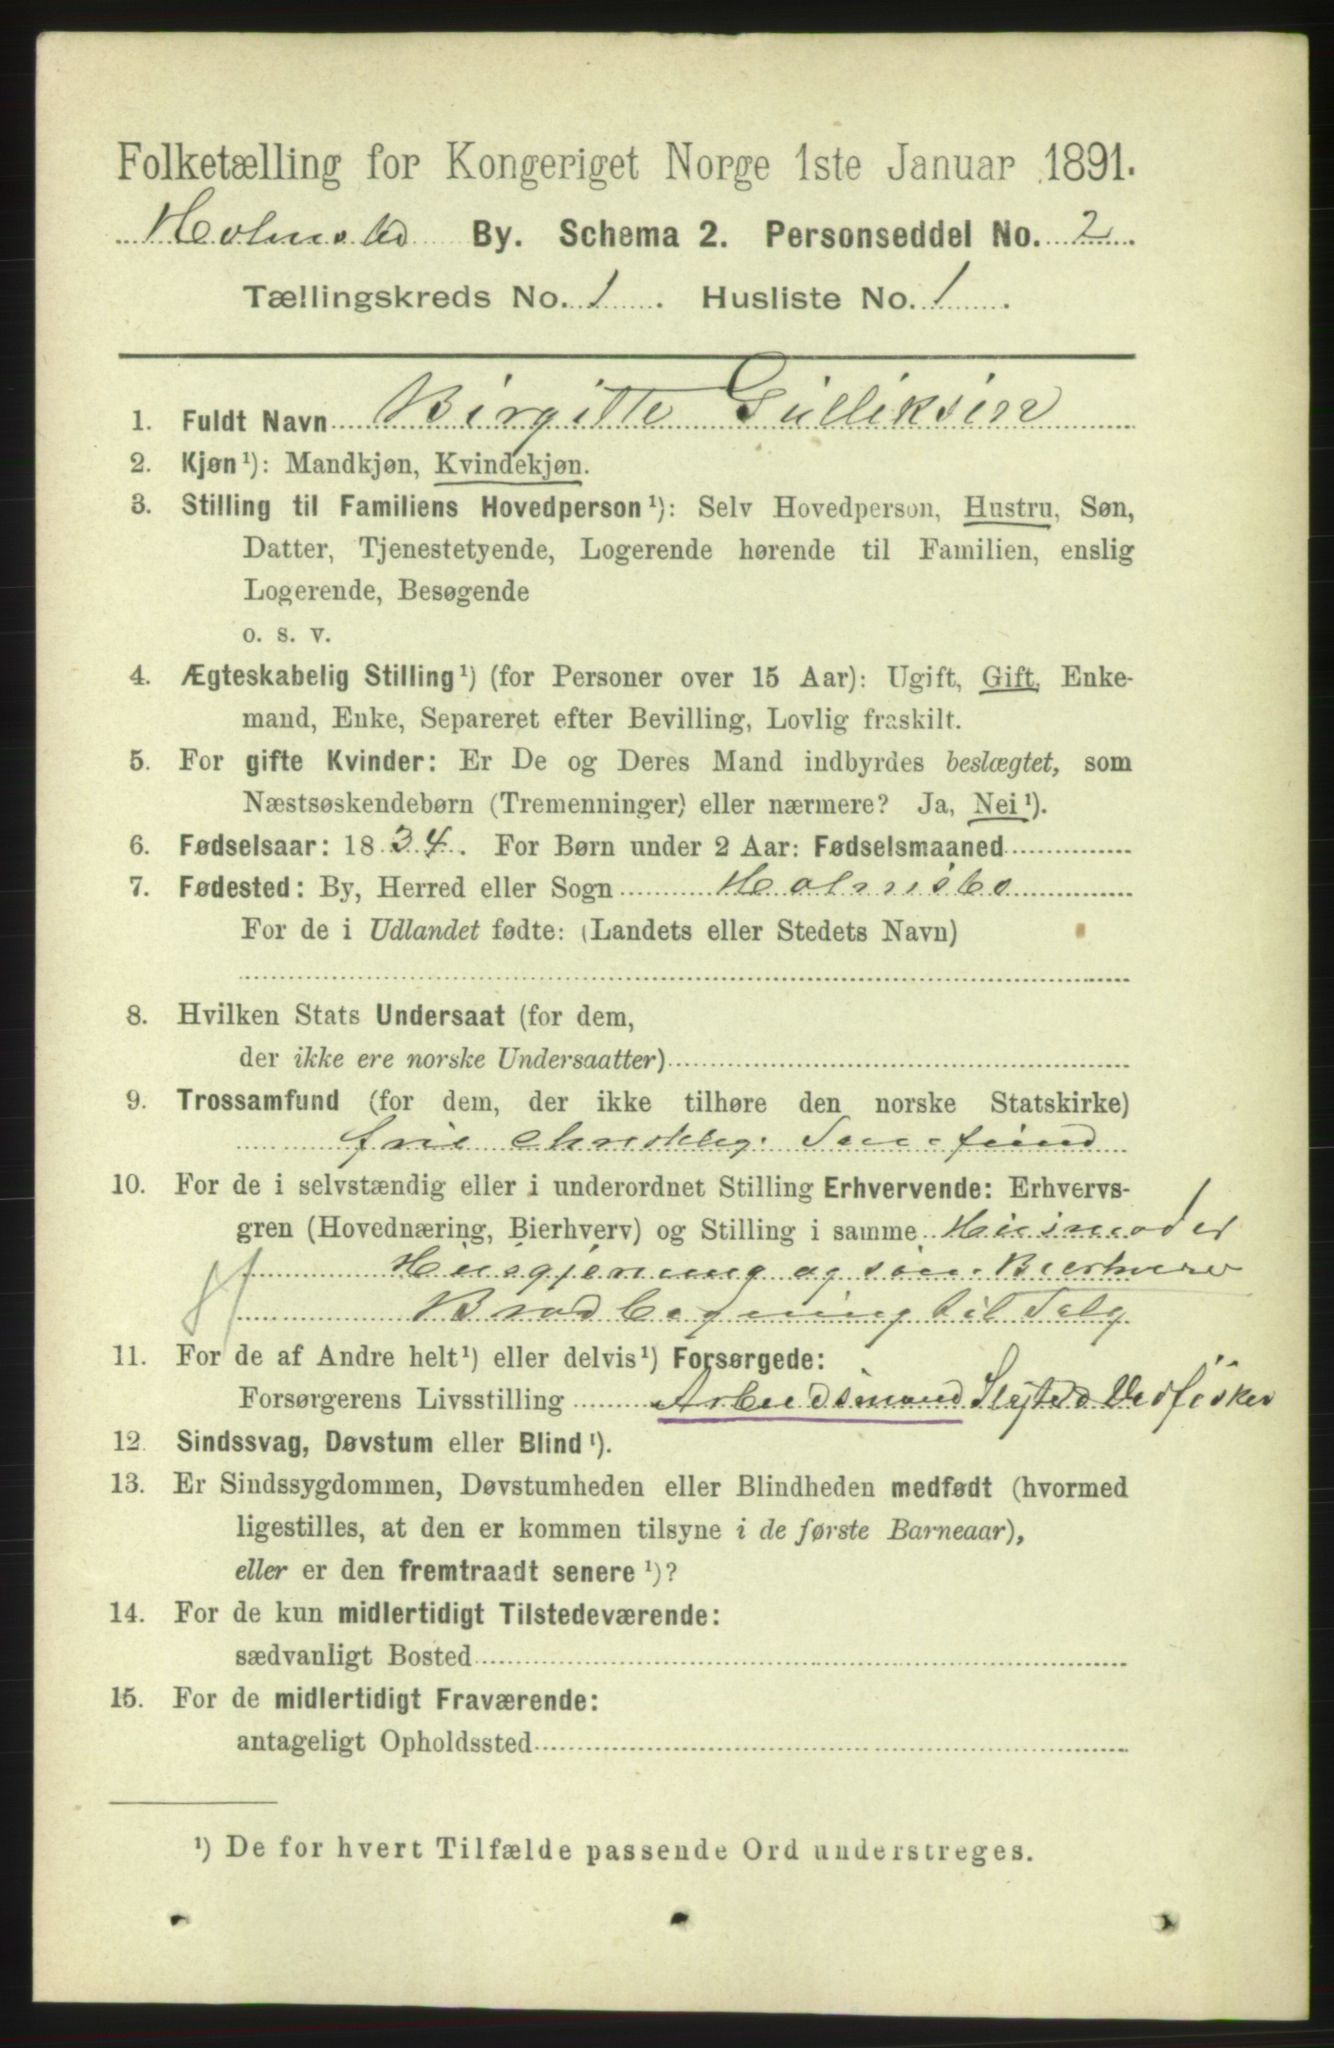 Folketælling for Kongeriget Norge 1ste Januar 1891.
Holmsbo By. Schema 2. Personseddel No. 2.
Tællingskreds No. 1. Husliste No. 1.
1. Fuldt Navn Birgitte Gulliksen
2. Kjøn¹): Mandkjøn, Kvindekjøn.
3. Stilling til Familiens Hovedperson¹): Selv Hovedperson, Hustru, Søn,
Datter, Tjenestetyende, Logerende hørende til Familien, enslig
Logerende, Besøgende
o. s. v.
4. Ægteskabelig Stilling¹) (for Personer over 15 Aar): Ugift, Gift, Enke-
mand, Enke, Separeret efter Bevilling, Lovlig fraskilt.
5. For gifte Kvinder: Er De og Deres Mand indbyrdes beslægtet, som
Næstsøskendebørn (Tremenninger) eller nærmere? Ja, Nei¹).
6. Fødselsaar: 1834. For Børn under 2 Aar: Fødselsmaaned
7. Fødested: By, Herred eller Sogn Holmsbo
For de i Udlandet fødte: (Landets eller Stedets Navn)
8. Hvilken Stats Undersaat (for dem,
der ikke ere norske Undersaatter)
9. Trossamfund (for dem, der ikke tilhøre den norske Statskirke)
frie Samfund
10. For de i selvstændig eller i underordnet Stilling Erhvervende: Erhvervs-
gren (Hovednæring, Bierhverv) og Stilling i samme Husmoder
Husgjerning og som Bierhverv
Brødbagning til Salg
11. For de af Andre helt¹) eller delvis¹) Forsørgede:
Forsørgerens Livsstilling Arbeidsmand
12. Sindssvag, Døvstum eller Blind¹).
13. Er Sindssygdommen, Døvstumheden eller Blindheden medfødt (hvormed
ligestilles, at den er kommen tilsyne i de første Barneaar),
eller er den fremtraadt senere¹)?
14. For de kun midlertidigt Tilstedeværende:
sædvanligt Bosted
15. For de midlertidigt Fraværende:
antageligt Opholdssted
¹) De for hvert Tilfælde passende Ord understreges.